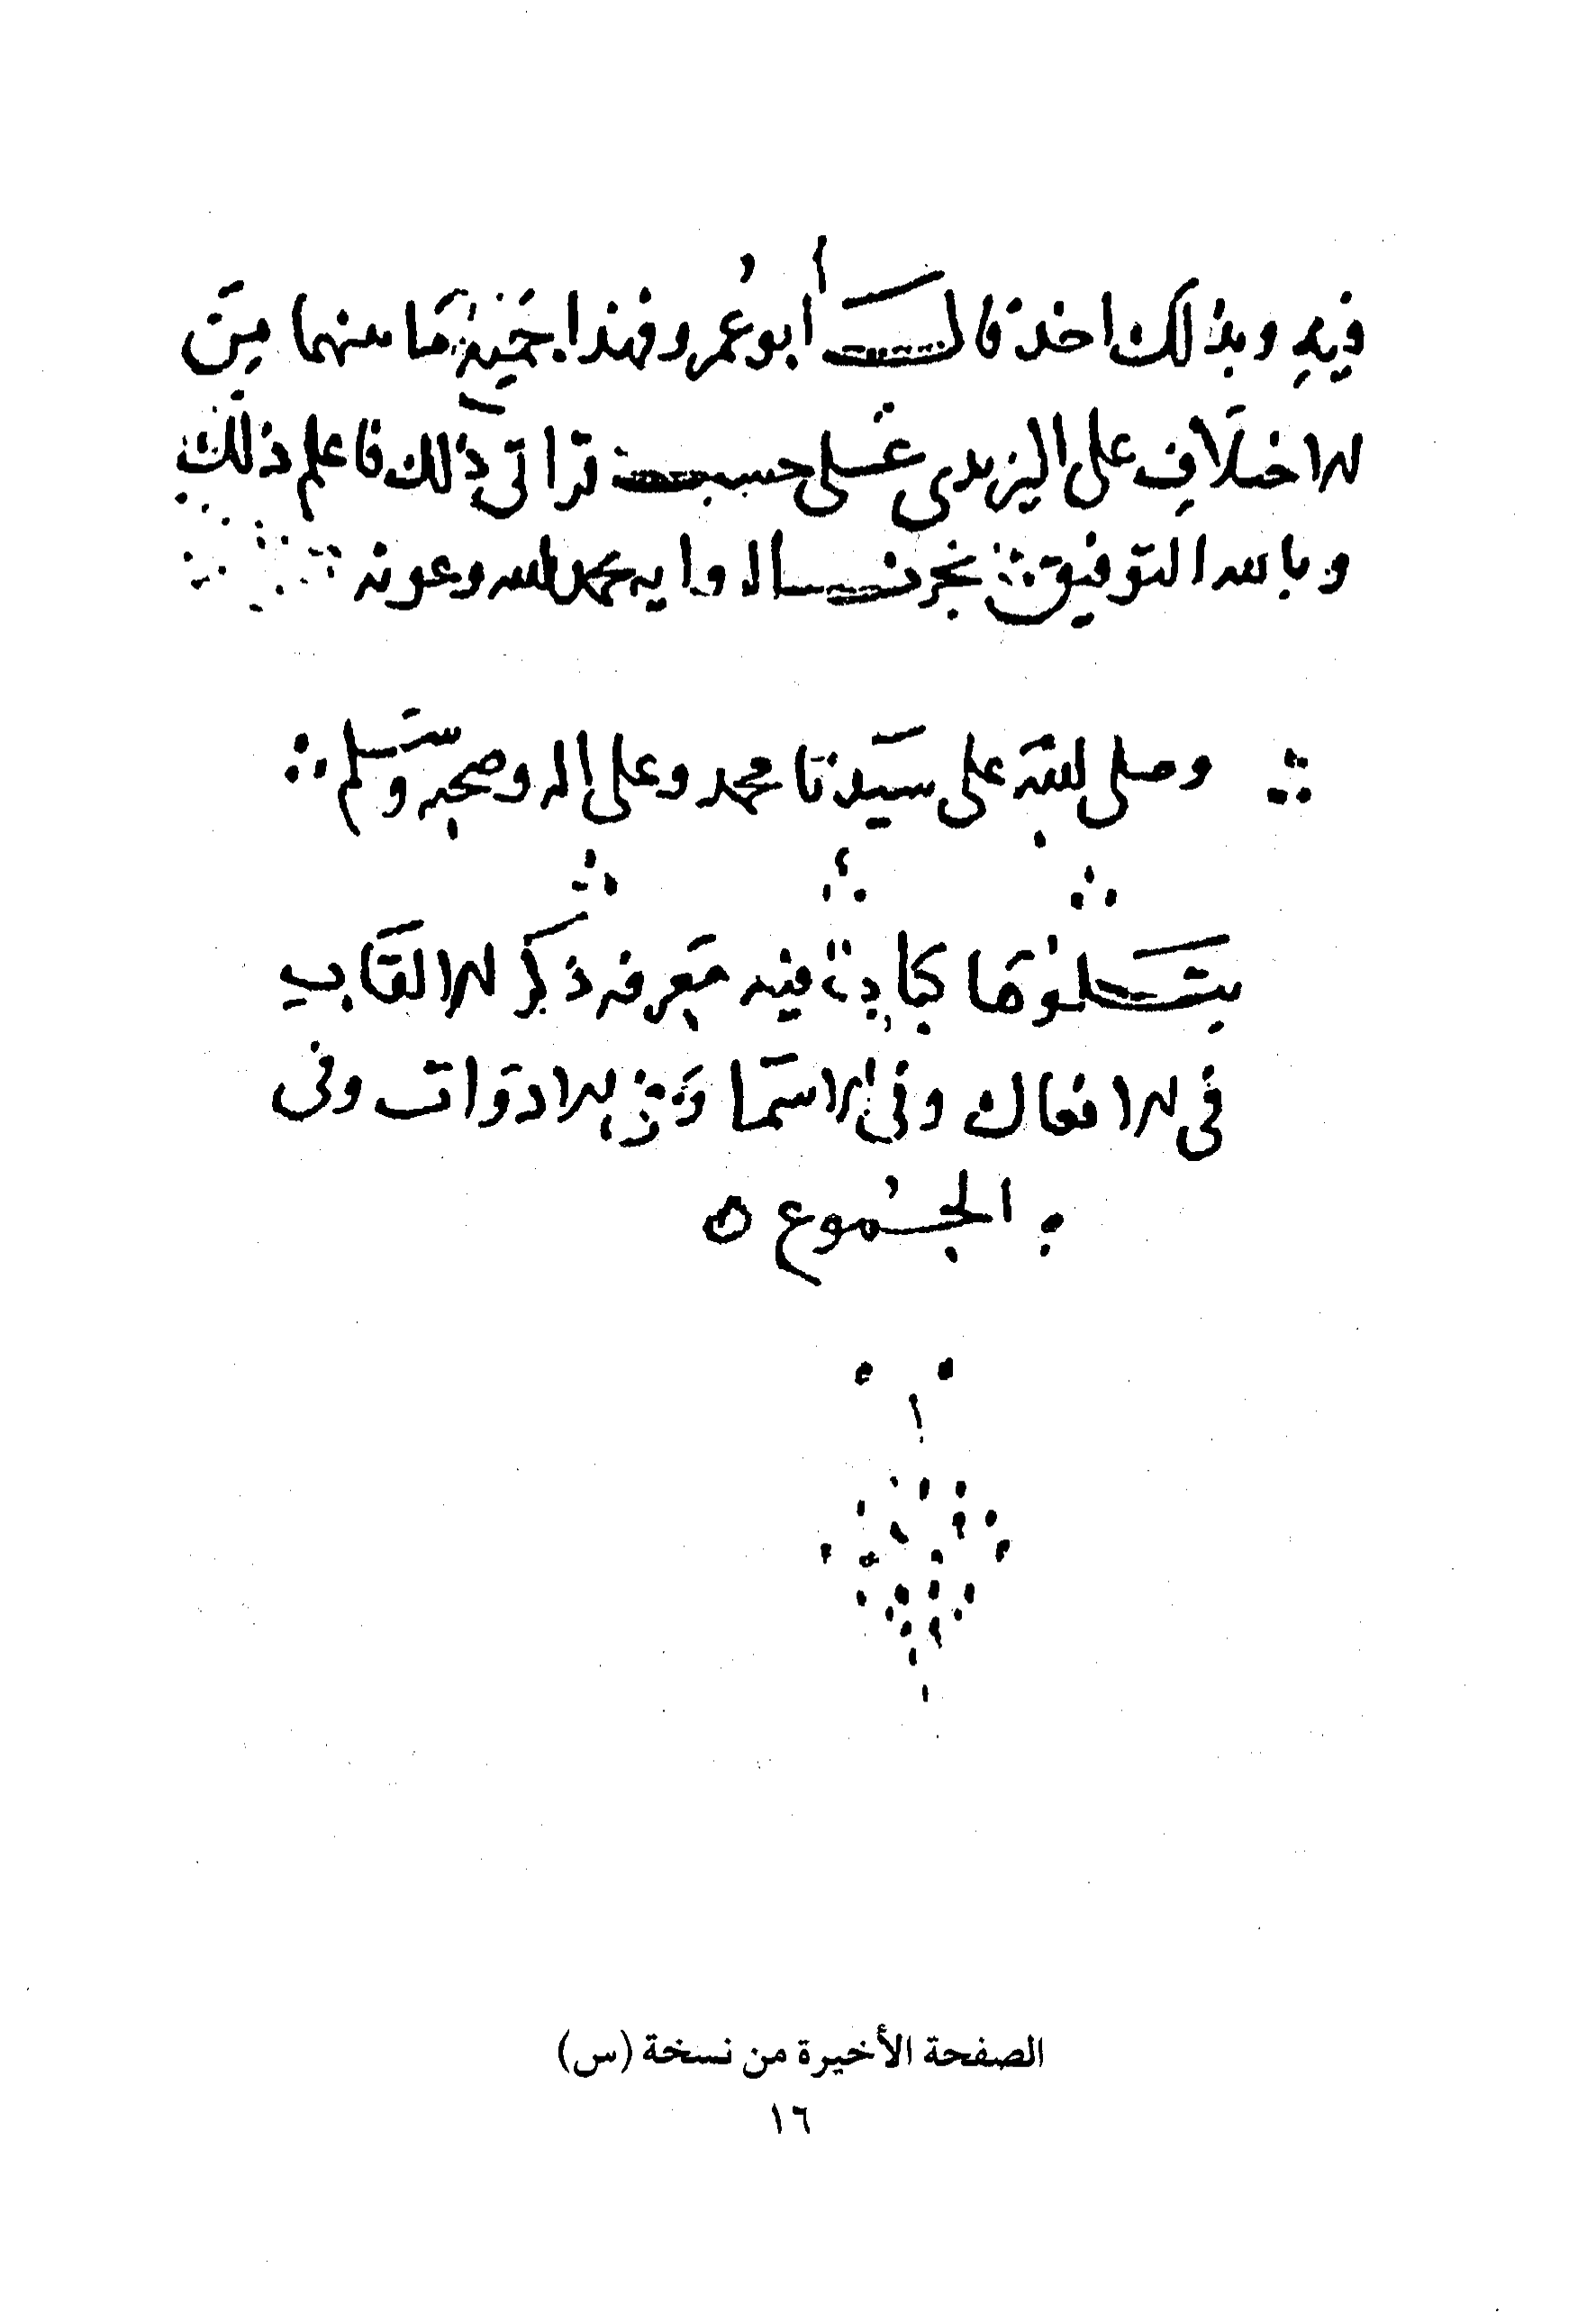 فيه وبذلك اخذ قال ابو عمرو فهذا جميع ما بينهما من
الاختلاف على اليزيدي على حسب قراتي ذلك فاعلم ذلك
وبالله التوفيق نجزت الرواية بحمد الله وعونه
وصلى الله على سيدنا محمد وعلى اله وصحبه وسلم
يتلوها كتاب فيه معرفة ذكر الالقاب
في الافعال وفي الاسما وفي الادوات وفي
الجموع
الصفحة الأخيرة من نسخة (س)
١٦